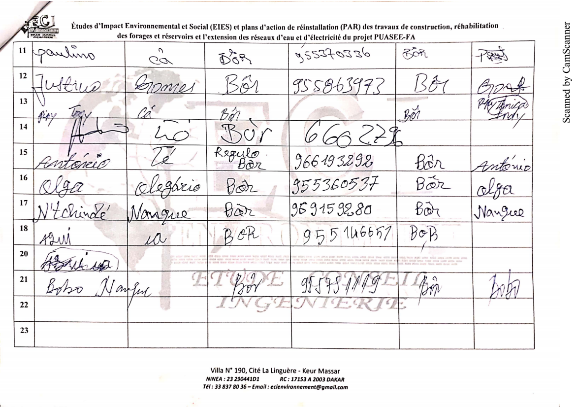 Études d'Impact Environnemental et Social (EIES) et plans d'action de réinstallation (PAR) des travaux de construction, réhabilitation
des forages et réservoirs et l'extension des réseaux d'eau et d'électricité du projet PUASEE-FA
11 paulino cá Bôr 955370336 Bôr
12 Justino Gomes Bôr 955863973 Bôr
13 Tony Cá Bôr Bôr
14 Có Bôr
15 António Té Regulo Bôr 966193292 Bôr António
16 olga olegário Bôr 955360537 Bôr olga
17 N'tchindé Nanque Bôr 969159280 Bôr Nanque
18 ia BOR 955146657 BOR
20
21 Bobo Nanque Bôr Bôr Bobo
22
23
ETUDE CONSEIL
INGENIERIE
Villa N° 190, Cité La Linguère - Keur Massar
NINEA : 23 230441D1 RC : 17153 A 2003 DAKAR
Tél : 33 837 80 36 – Email : ecienvironnement@gmail.com
Scanned by CamScanner